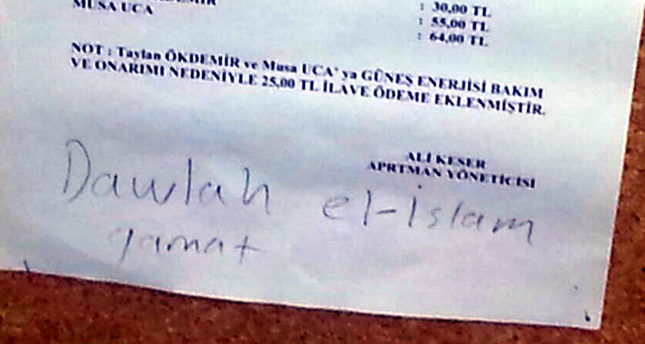 : 30,00 TL
MUSA UCA : 55,00 TL
: 64,00 TL
NOT : Taylan ÖKDEMİR ve Musa UCA' ya GÜNEŞ ENERJİSİ BAKIM
VE ONARIMI NEDENİYLE 25,00 TL İLAVE ÖDEME EKLENMİŞTİR.
ALİ KESER
APRTMAN YÖNETİCİSİ
Dawlah el-islam
qamat